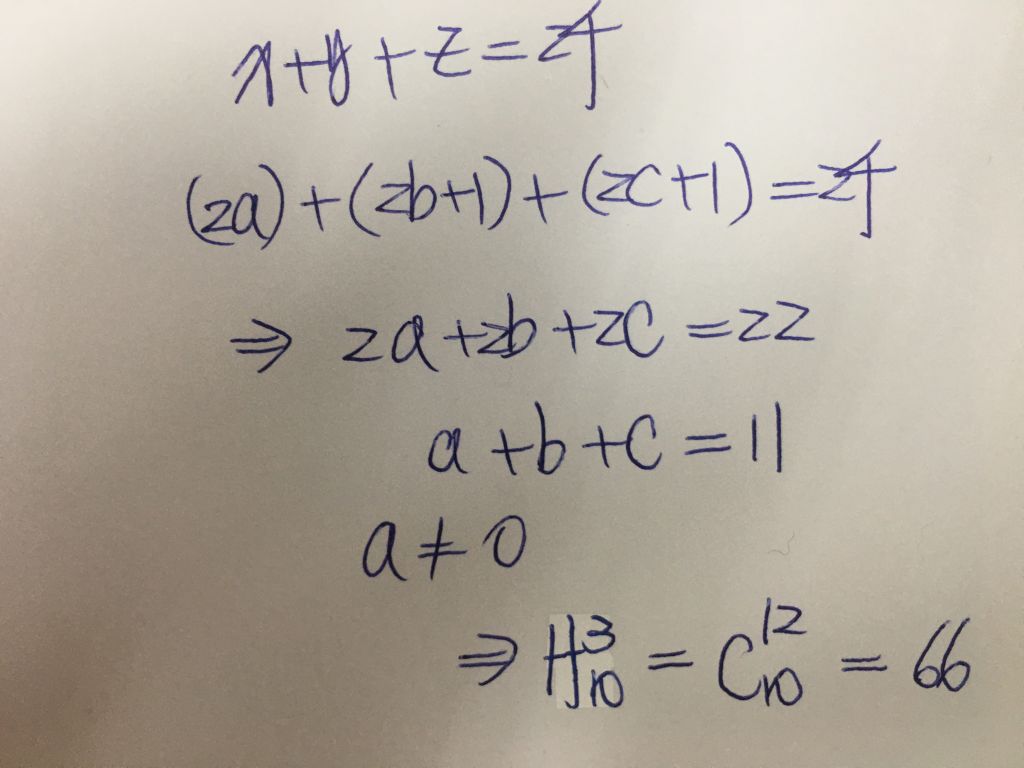 x+y+z=24
(2a)+(2b+1)+(2c+1)=24
⇒ 2a+2b+2c=22
a+b+c=11
a≠0
⇒ H³₁₀ = C¹²₁₀ = 66